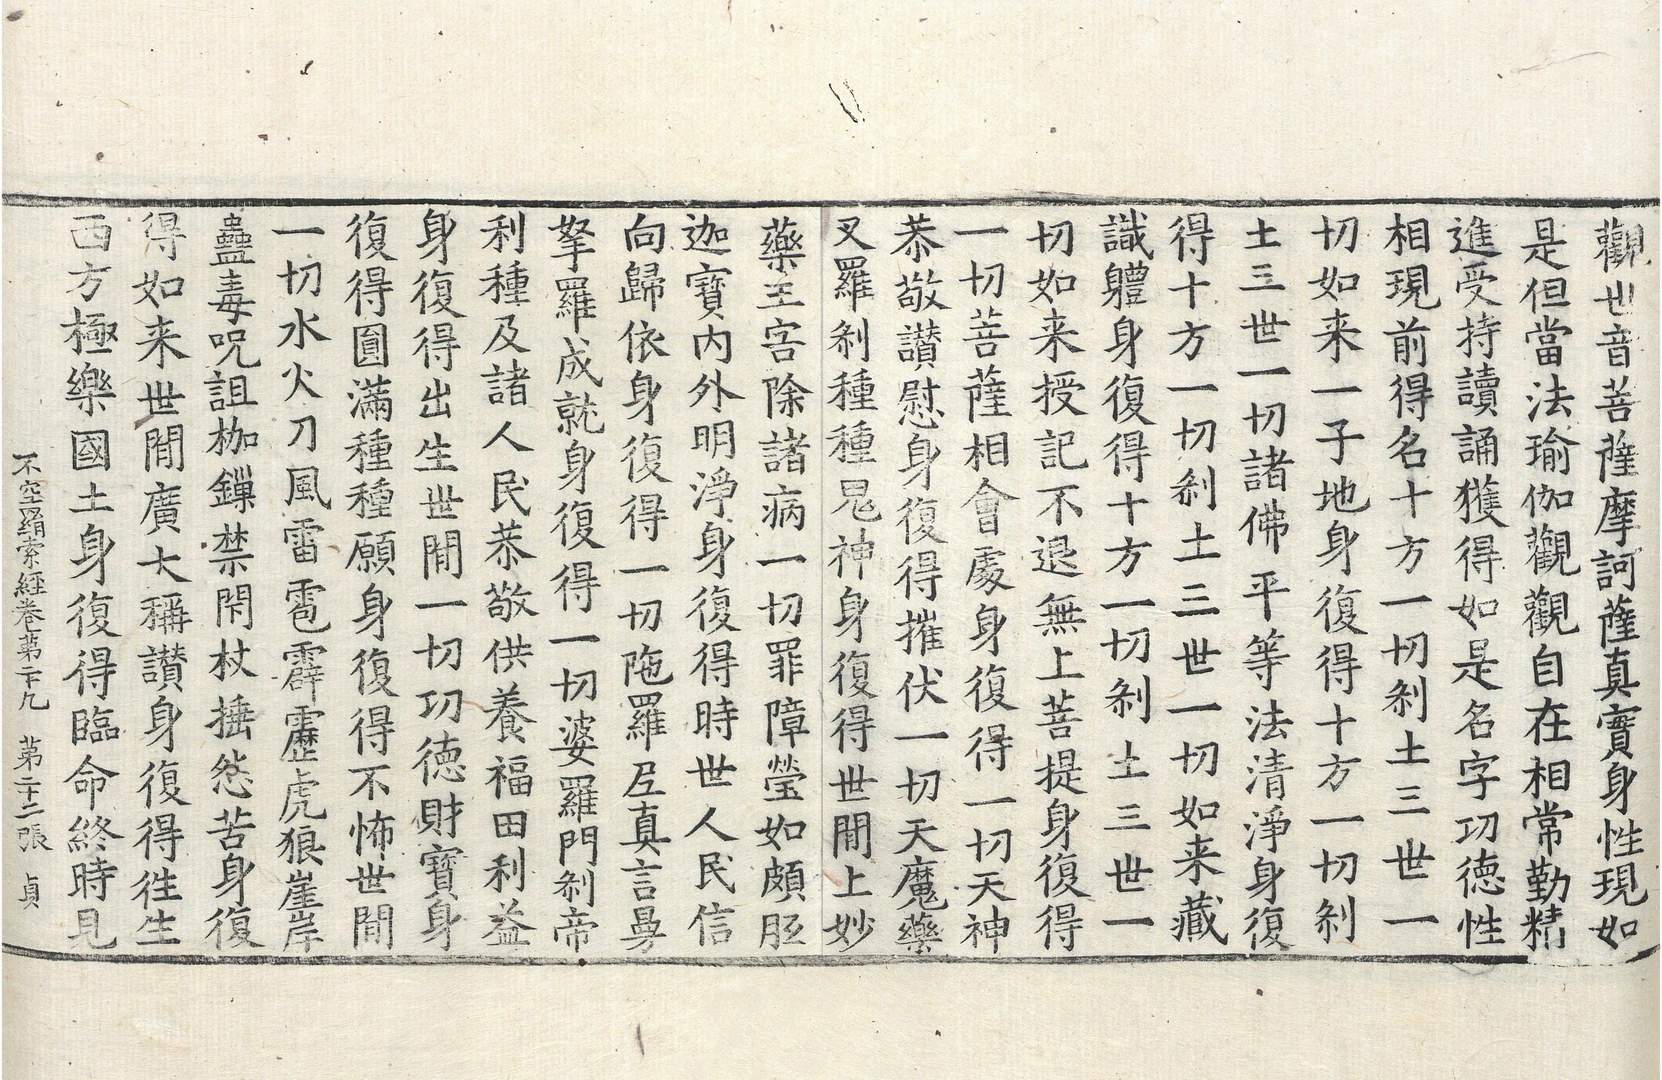 觀世音菩薩摩訶薩真實身性現如
是但當法瑜伽觀觀自在相常勤精
進受持讀誦獲得如是名字功德性
相現前得名十方一切刹土三世一
切如来一子地身復得十方一切刹
土三世一切諸佛平等法清淨身復
得十方一切刹土三世一切如来藏
識軆身復得十方一切刹土三世一
切如来授記不退無上菩提身復得
一切菩薩相會處身復得一切天神
恭敬讃慰身復得摧伏一切天魔藥
叉羅刹種種鬼神身復得世間上妙
藥王害除諸病一切罪障瑩如頗胝
迦寶内外明淨身復得時世人民信
向歸依身復得一切陁羅尼真言曼
拏羅成就身復得一切婆羅門刹帝
利種及諸人民恭敬供養福田利益
身復得出生世間一切功德財寶身
復得圓滿種種願身復得不怖世間
一切水火刀風雷雹霹靂虎狼崖岸
蠱毒呪詛枷鏁禁閇杖捶怨苦身復
得如来世間廣大稱讃身復得徃生
西方極樂國土身復得臨命終時見
不空羂索經卷第二十九 第二十二張 貞